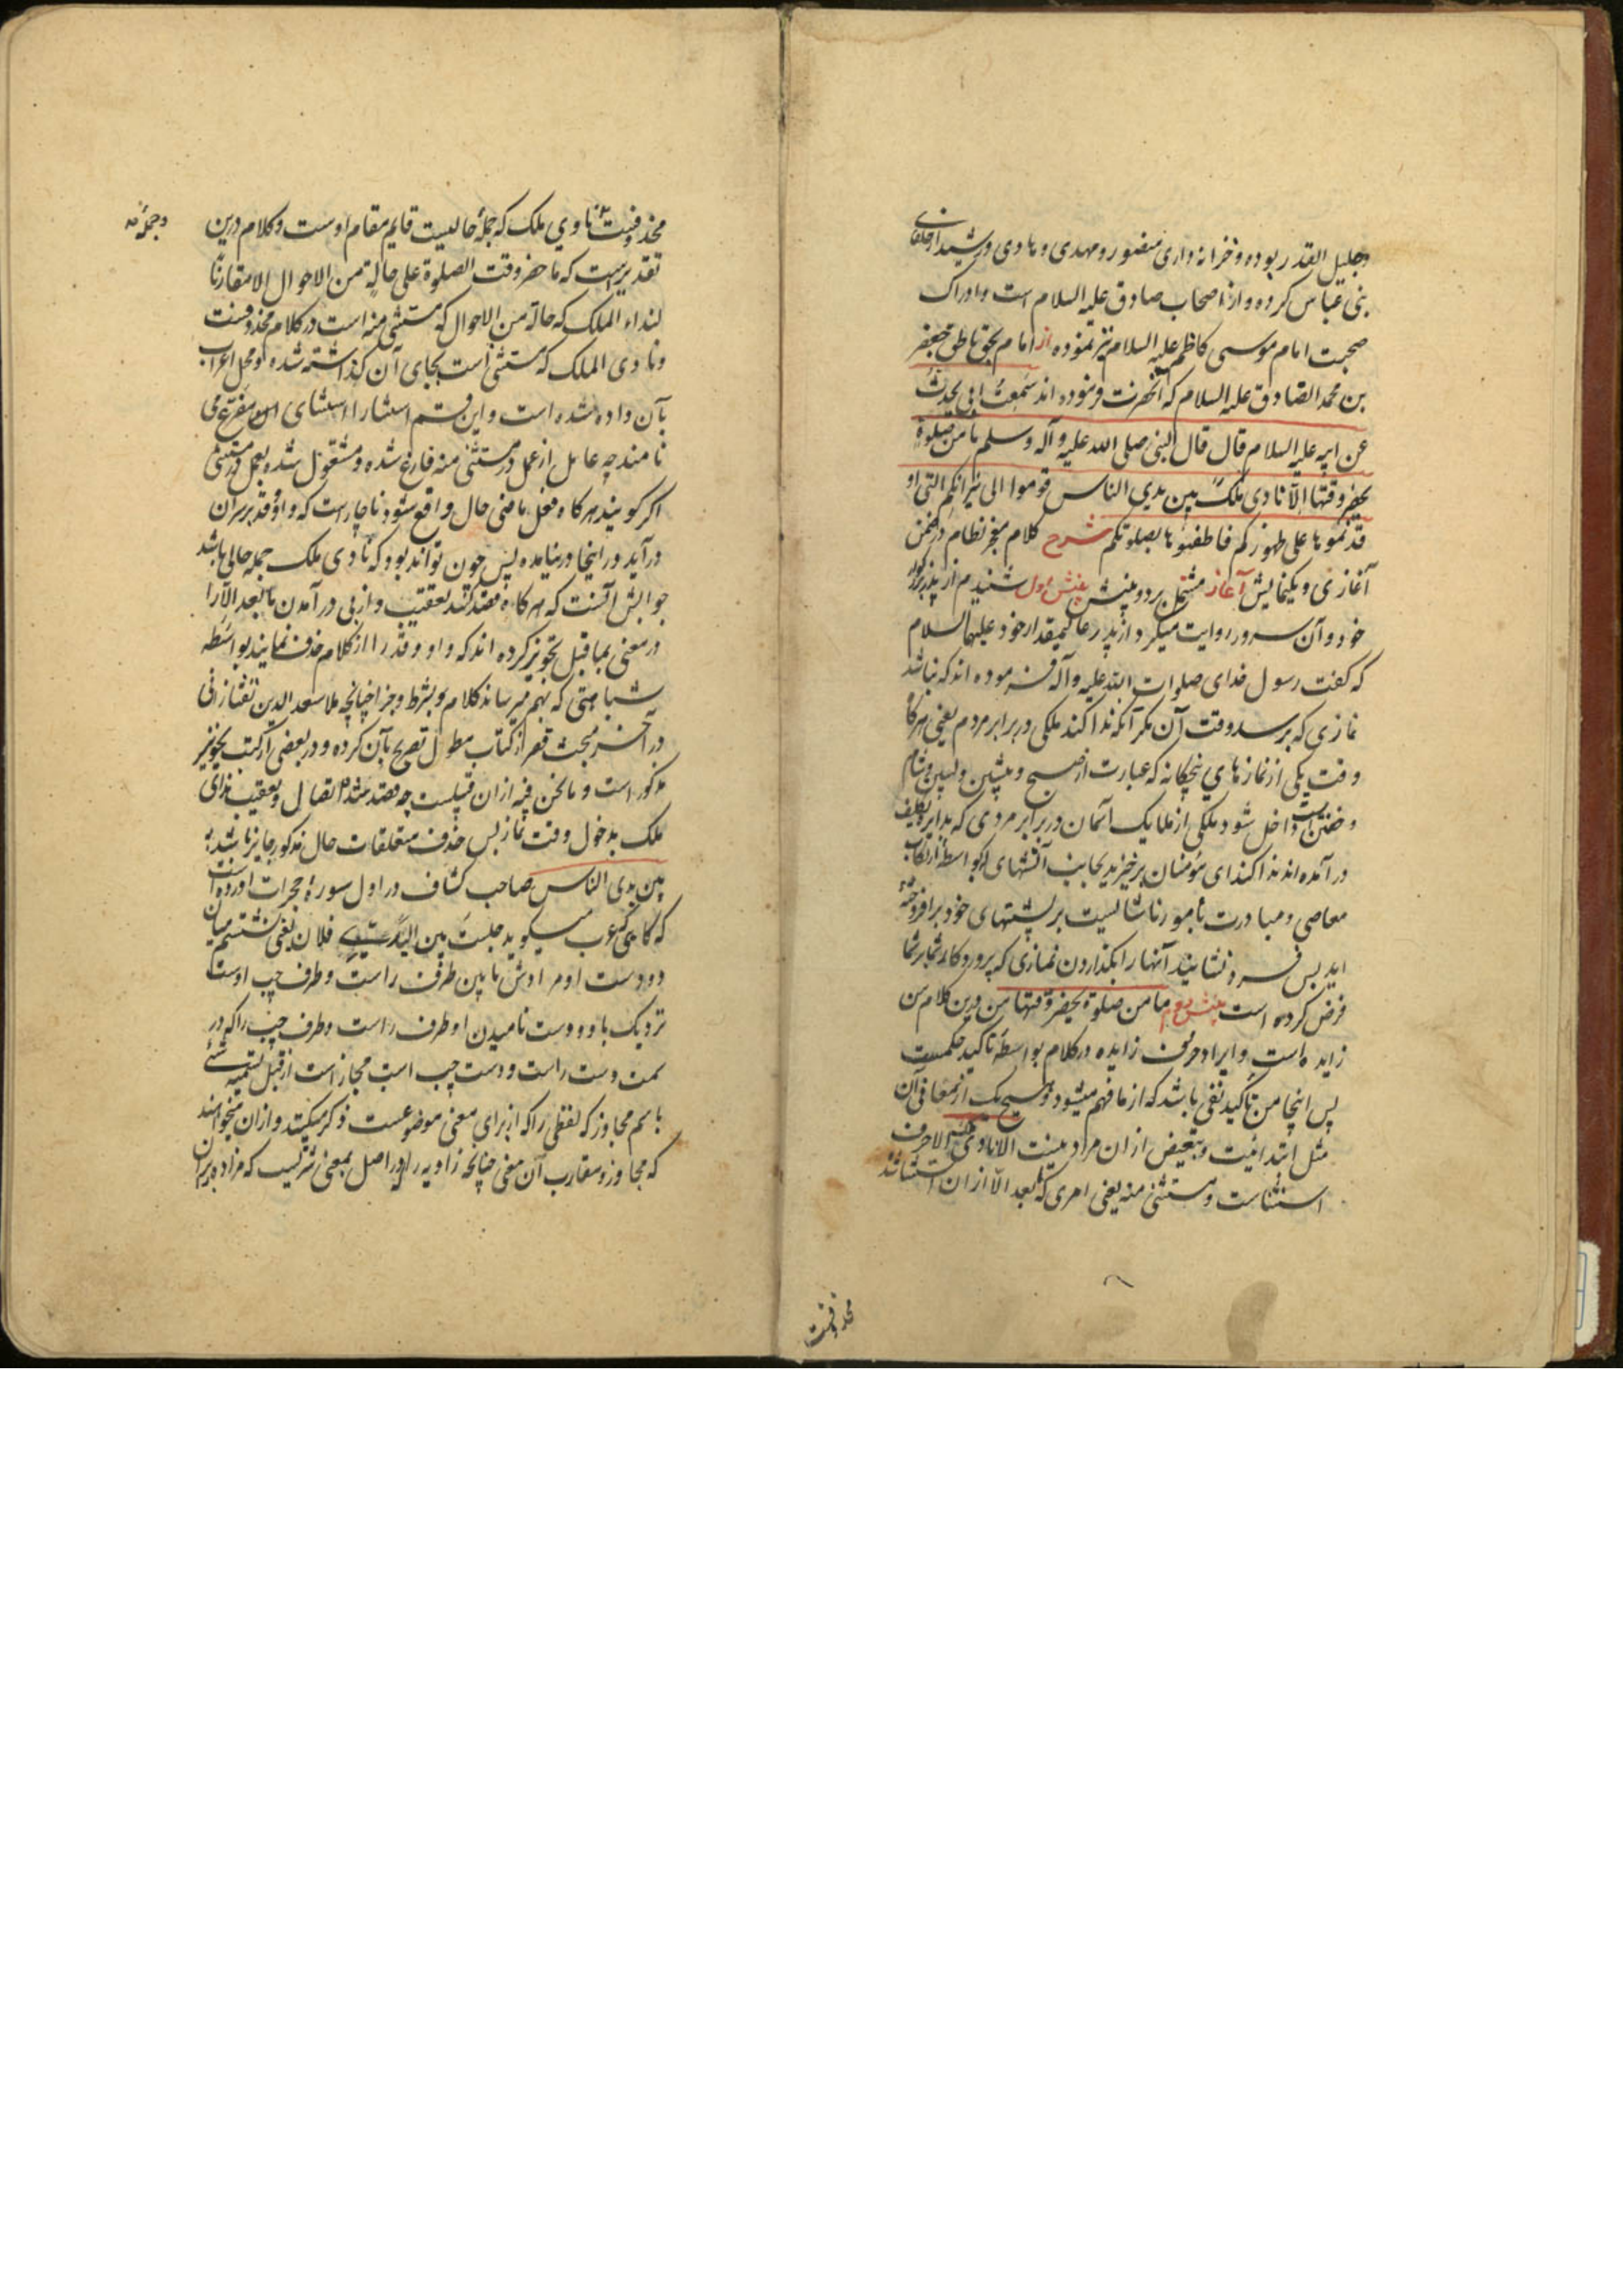 وجلیل القدر بوده و خزانه داری منصور و مهدی و هادی و رشید از خلفای
بنی عباس کرده و از اصحاب صادق علیه السلام است و ادراک
صحبت امام موسی کاظم علیه السلام نیز نموده از امام بحق ناطق جعفر
بن محمد الصادق علیه السلام که آنحضرت فرموده اند سمعت ابی یحدث
عن ابیه علیه السلام قال قال النبی صلی الله علیه و آله وسلم ما من صلوة
یحضر وقتها الا نادی ملک بین یدی الناس قوموا الی نیرانکم التی او
قدتموها علی ظهورکم فاطفئوها بصلوتکم شرح کلام معجز نظام در ضمن
آغازی و یکنمایش آغاز مشتمل بر دو بینش بینش اول شنیدم از پدر بزرگوار
خود و آن سرور روایت میکرد از پدر عالیمقدار خود علیهما السلام
که گفت رسول خدای صلوات الله علیه و آله فرموده اند که نباشد
نمازی که برسد وقت آن مگر آنکه ندا کند ملکی در برابر مردم یعنی هرگاه
وقت یکی از نمازهای پنجگانه که عبارت از صبح و پیشین و پسین و شام
و خفتن است داخل شود ملکی از ملایک آسمان در برابر مردمی که بدایره تکلیف
در آمده اند ندا کند ای مؤمنان برخیزید بجانب آتشهای که بواسطه ارتکاب
معاصی و مبادرت بامور ناشایست بر پشتهای خود برافروخته
اید پس فرو نشانید آنها را بگذاردن نمازی که پروردگار شما بر شما
فرض کرده است بینش دوم ما من صلوة یحضر وقتها من درین کلام من
زایده است و ایراد حروف زایده در کلام بواسطه تاکید حکمست
پس اینجا من تاکید نفی باشد که از ما فهم میشود و هیچ یک از معانی آن
مثل ابتدائیت و تبعیض از ان مراد نیست الا نادی ملک الا حرف
استثناست و مستثنی منه یعنی امری که مابعد الا از ان استثنا شد
محذوفست
محذوفست نادی ملک که جملهٔ حالیست قایم مقام اوست و کلام درین
وجمله
تقدیرست که ما حضر وقت الصلوة علی حالة من الاحوال الا مقارنا
لنداء الملک که حالة من الاحوال که مستثنی منه است در کلام محذوفست
و نادی الملک که مستثنی است بجای آن گذاشته شده و محل اعراب
بآن داده شده است و این قسم استثنا را استثنای مفرغ می
نامند چه عامل از عمل در مستثنی منه فارغ شده و مشغول شده بعمل در مستثنی
اگر گویند هرگاه فعل ماضی حال واقع شود ناچارست که واو و قد بر سر آن
درآید و در اینجا در نیامده پس چون تواند بود که نادی ملک جمله حالی باشد
جوابش آنست که هرگاه قصد کنند تعقیب و از پی در آمدن مابعد الا را
در معنی بماقبل تجویز کرده اند که واو و قد را از کلام حذف نمایند بواسطه
شباهتی که بهم میرساند کلام بشرط و جزا چنانچه ملا سعد الدین تفتازانی
در آخر مبحث قصر از کتاب مطول تصریح بآن کرده و در بعضی از کتب نحو نیز
مذکور است و مانحن فیه از ان قبیلست چه قصد شده اتصال و تعقیب ندای
ملک بدخول وقت نماز پس حذف متعلقات حال مذکور جایز باشد
بین یدی الناس صاحب کشاف در اول سوره حجرات آورده است
که گاهی که عرب میگوید جلست بین یدی فلان یعنی نشستم میان
دو دست او مرادش مابین طرف راست و طرف چپ اوست
نزدیک باو و دست نامیدن او طرف راست و طرف چپ را که در
سمت دست راست و دست چپ است مجاز است از قبیل تسمیه شئ
باسم مجاور که لفظی را که از برای معنی موضوعست ذکر میکنند و از ان میخواهند
که مجاور و مقارب آن معنی چنانچه راویه را که در اصل بمعنی شتریست که مزاده بر ان